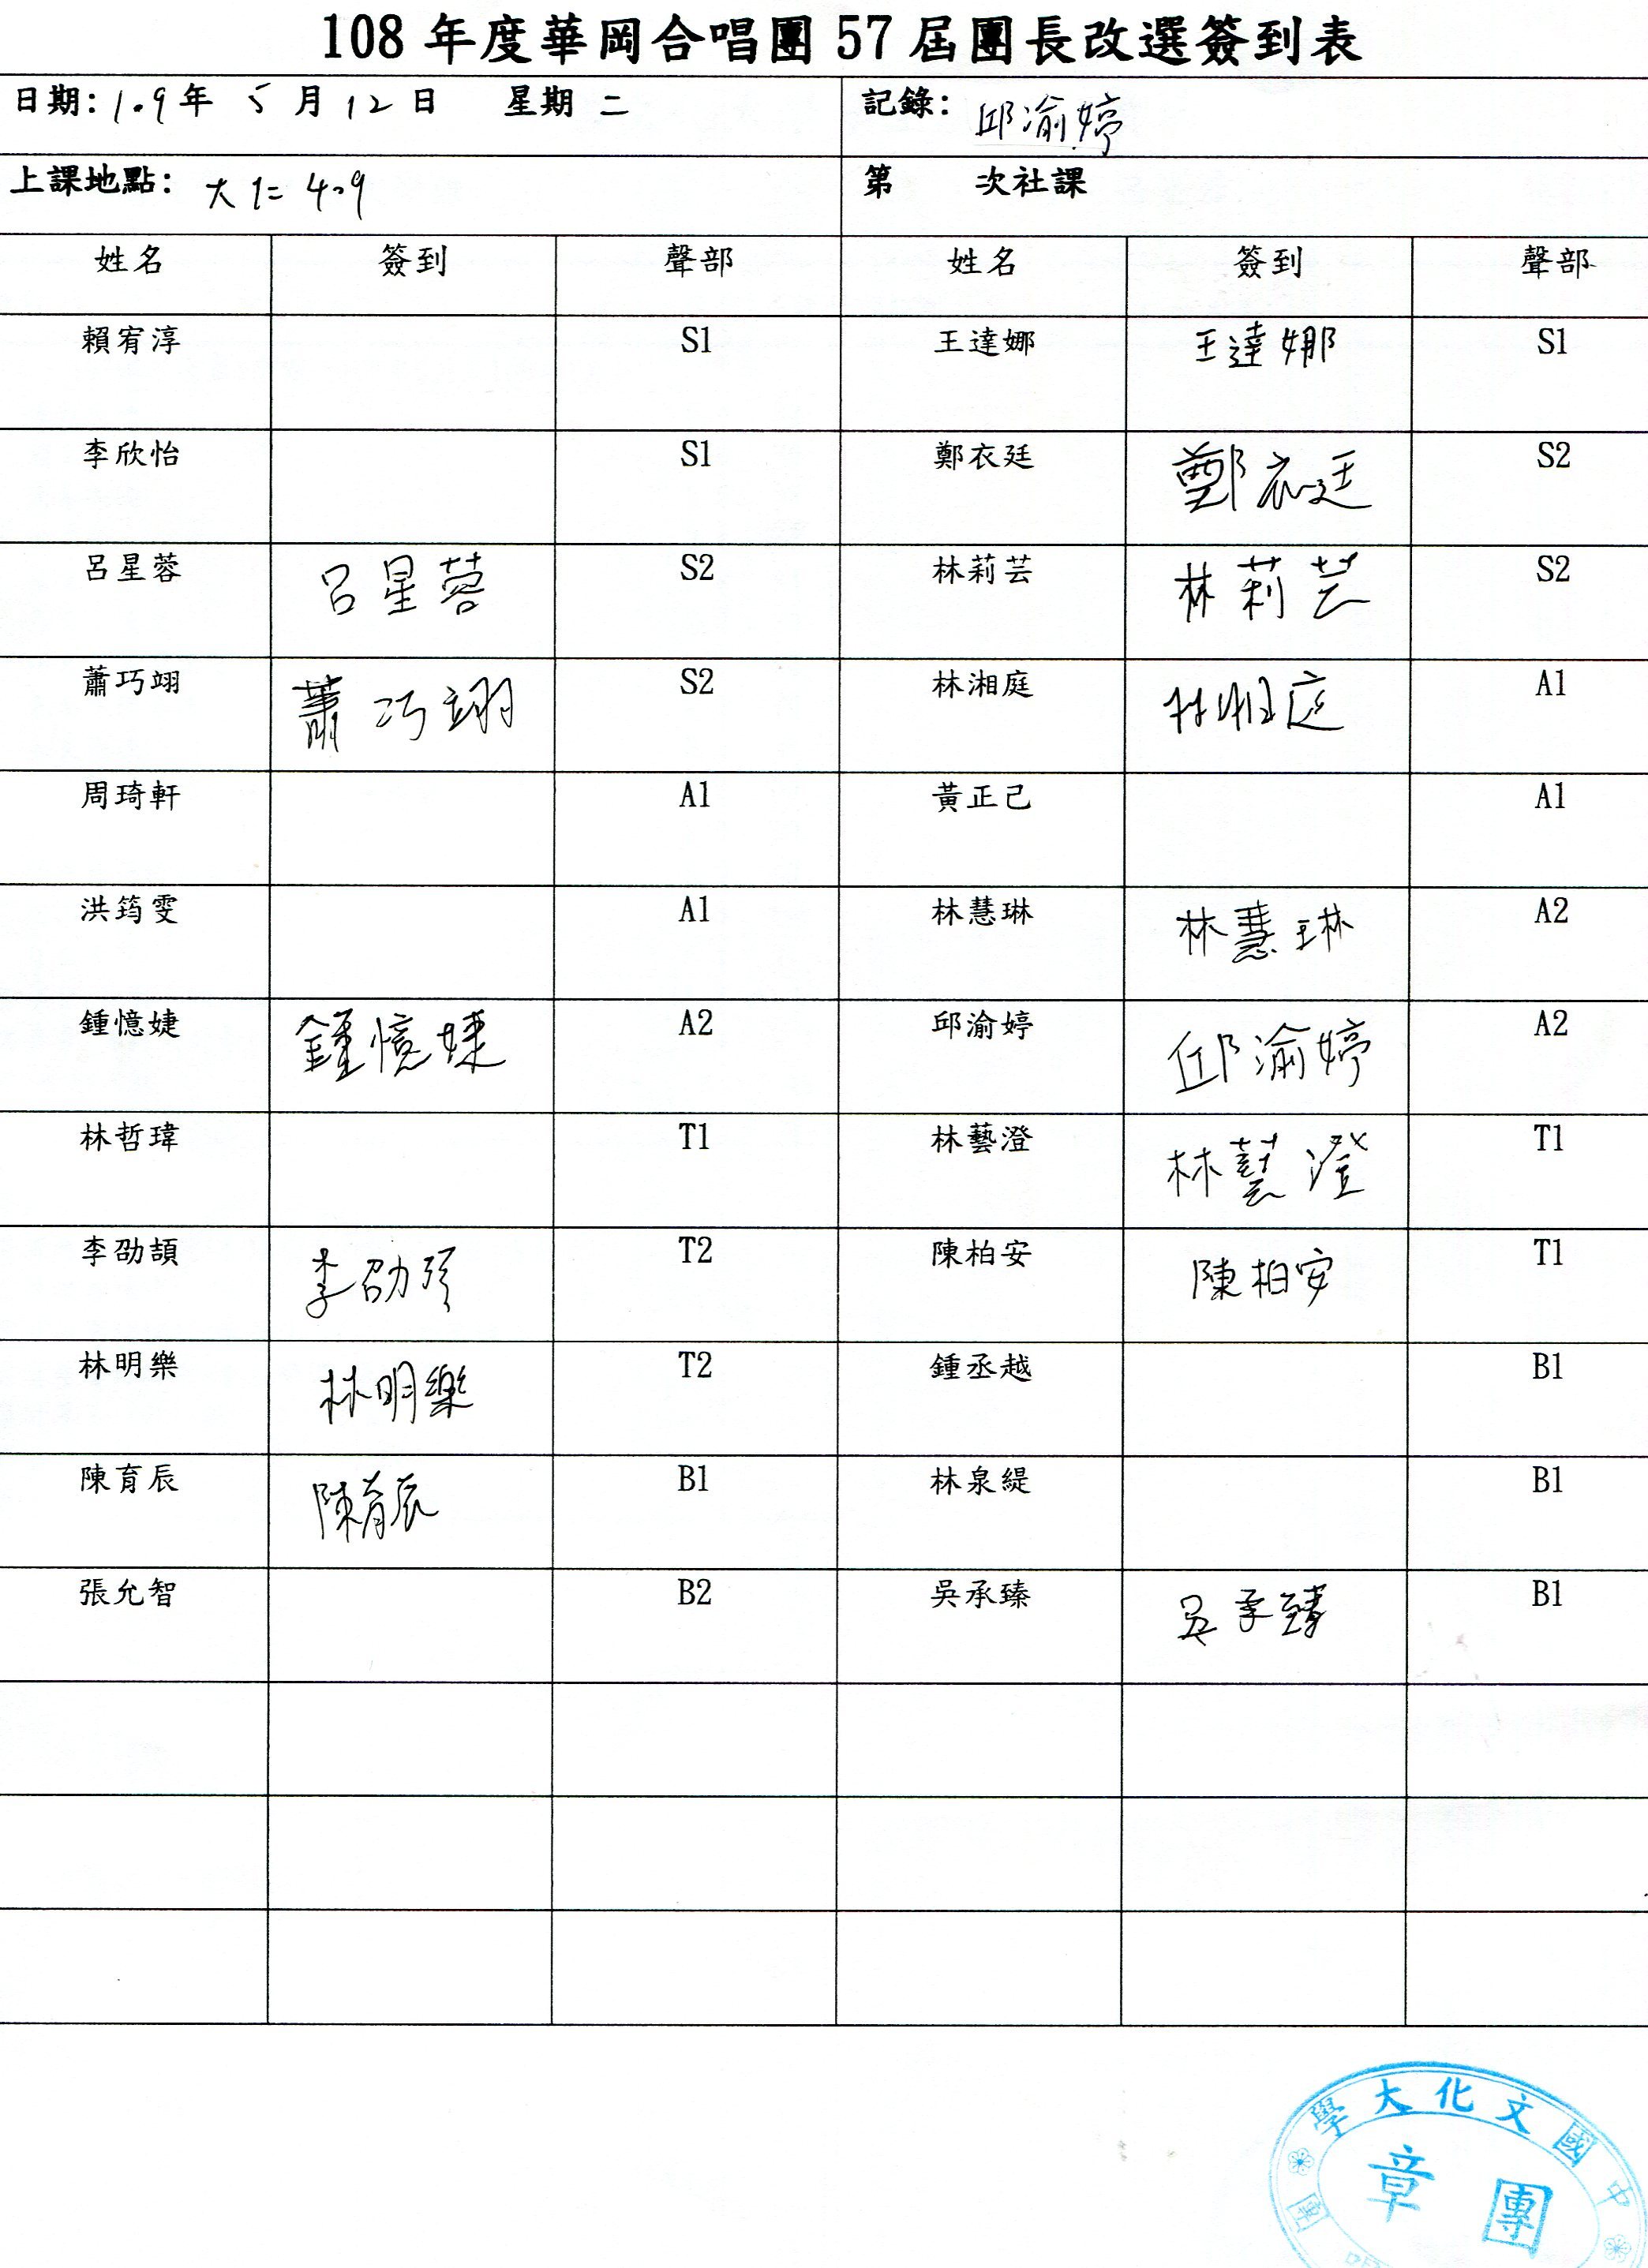 108 年度華岡合唱團 57 屆團長改選簽到表
日期: 109 年 5 月 12 日 星期 二 記錄: 邱渝婷
上課地點: 大仁 409 第 次社課
姓名 簽到 聲部 姓名 簽到 聲部
賴宥淳 S1 王達娜 王達娜 S1
李欣怡 S1 鄭衣廷 鄭衣廷 S2
呂星蓉 呂星蓉 S2 林莉芸 林莉芸 S2
蕭巧翊 蕭巧翊 S2 林湘庭 林湘庭 A1
周琦軒 A1 黃正己 A1
洪筠雯 A1 林慧琳 林慧琳 A2
鍾憶婕 鍾憶婕 A2 邱渝婷 邱渝婷 A2
林哲瑋 T1 林藝澄 林藝澄 T1
李劭頡 李劭頡 T2 陳柏安 陳柏安 T1
林明樂 林明樂 T2 鍾丞越 B1
陳育辰 陳育辰 B1 林泉緹 B1
張允智 B2 吳承臻 吳承臻 B1
中國文化大學
團章